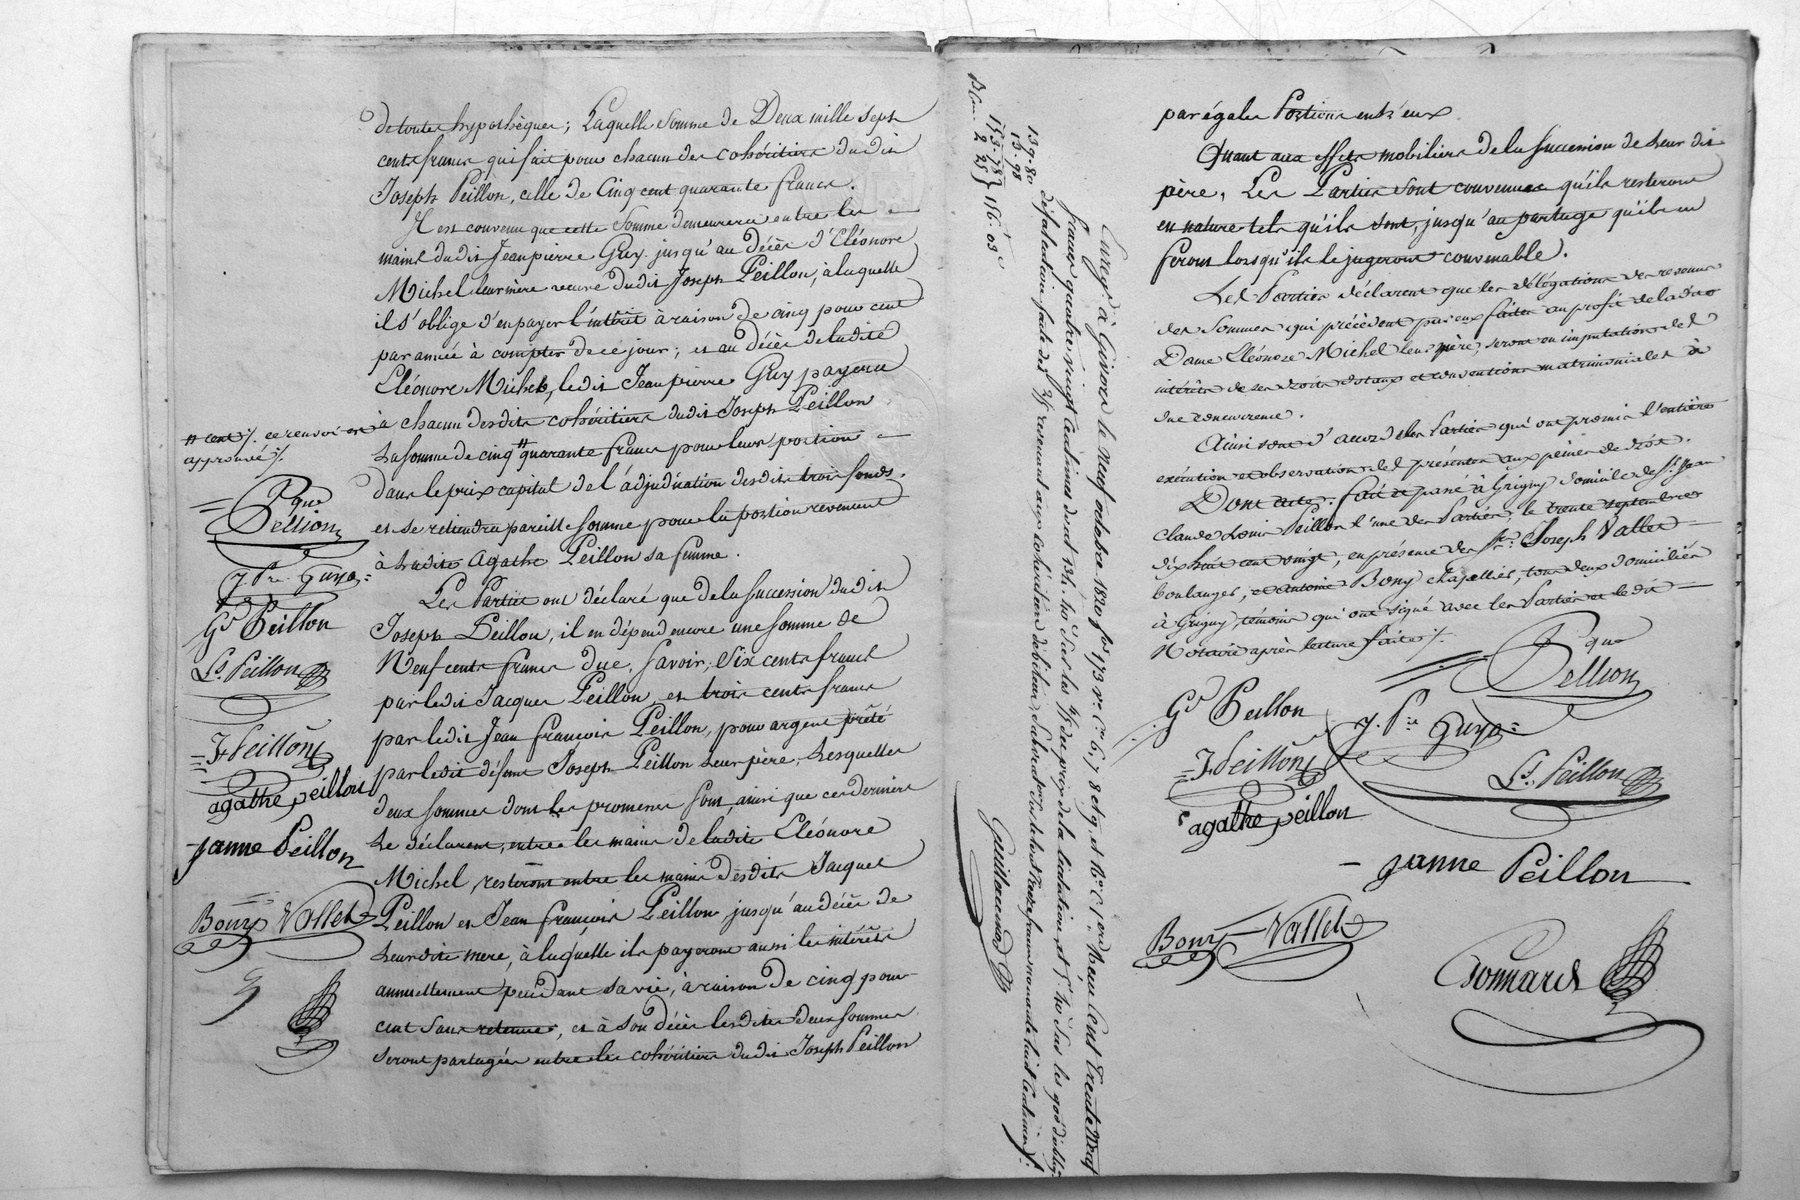 de toutes hypothèques; Laquelle somme de Deux mille sept
cents francs qui fait pour chacun des cohéritiers dudit
Joseph Peillon, celle de Cinq cent quarante francs.
Il est convenu que cette Somme demeurera entre les
mains dudit Jean pierre Guy jusqu'au décès d'Eléonore
Michel leur mère veuve dudit Joseph Peillon, à laquelle
il s'oblige d'en payer l'intérêt à raison de cinq pour cent
par année à compter de ce jour; et au décès de ladite
Eléonore Michel, ledit Jean pierre Guy payera
à chacun desdits cohéritiers dudit Joseph Peillon
la somme de cinq # quarante francs pour leur portion
dans le prix capital de l'adjudication desdits trois fonds.
et se retiendra pareille somme pour la portion revenant
à ladite Agathe Peillon sa femme.
Les Parties ont déclaré que de la succession dudit
Joseph Peillon, il en dépend encore une somme de
Neuf cents francs due, Savoir; Six cents francs
par ledit Jacques Peillon, et trois cents francs
par ledit Jean françois Peillon, pour argent prêté
par ledit défunt Joseph Peillon leur père, lesquelles
deux sommes dont les promesses sont, ainsi que ces derniers
le déclarent, entre les mains de ladite Eléonore
Michel, resteront entre les mains desdits Jacques
Peillon et Jean françois Peillon jusqu'au décès de
leurdite mere, à laquelle ils payeront aussi les intérêts
annuellement pendant sa vie, à raison de cinq pour
cent sans retenue, et à son décès lesdites deux sommes
seront partagées entre les cohéritiers dudit Joseph Peillon
# cent /. ce renvoi est
approuvé /.
Pque
Pellion
J. Pre Guy
Gd Peillon
Ls. Peillon
Jf Peillon
agathe peillon
janne Peillon
Bony Vallet
139. 80
13. 98
153. 78
2 25 } 156. 03
Enregt. à Givors le neuf octobre 1820 fos 173 vo. Co 6, 7 8 et 9, et Reçu Cent trente neuf
francs quatre vingt centimes
défalcation faite des revenant aux cohéritiers
Guillermard
par égales Portions entr'eux
Quant aux effets mobiliers de la succession de leur dit
père, Les Parties sont convenues qu'ils resteront
en nature tels qu'ils sont, jusqu'au partage qu'ils en
feront lorsqu'ils le jugeront convenable.
Les Parties déclarent que les délégations des revenus
des sommes qui précèdent par eux faites au profit de ladite
Dame Eléonore Michel leur mère, seront en imputation des
intérêts de ses droits dotaux et conventions matrimoniales à
due concurrence.
Ainsi sont d'accord les Parties qui ont promis l'entière
exécution et observation des présentes aux peines de droit.
Dont acte. fait et passé à Grigny domicile de St. Jean
claude Louis Peillon l'une des Parties, le trente septembre
dix huit cent vingt, en présence des Srs. Joseph Vallet
boulanger, et antoine Bony chapellier, tous deux domiciliés
à Grigny témoins qui ont signé avec les Parties et le dit
Notaire après lecture faite /.
Pque
Pellion
Gd Peillon
J. Pre Guy
Jf Peillon
Ls. Peillon
agathe peillon
janne Peillon
Bony Vallet
Connard